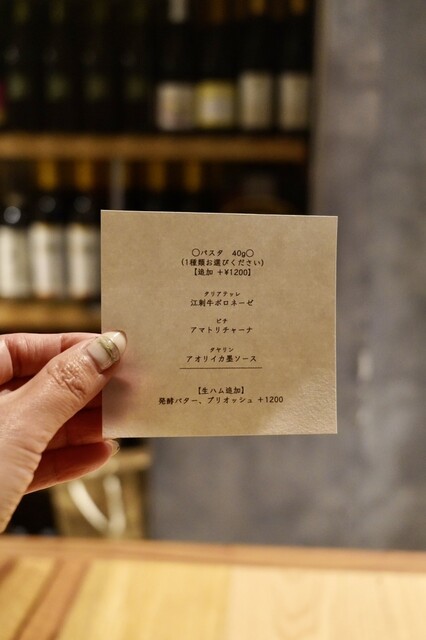 〇パスタ 40g〇
(1種類お選びください)
【追加 +¥1200】
タリアテッレ
江刺牛ボロネーゼ
ピチ
アマトリチャーナ
タヤリン
アオリイカ墨ソース
【生ハム追加】
発酵バター、ブリオッシュ +1200